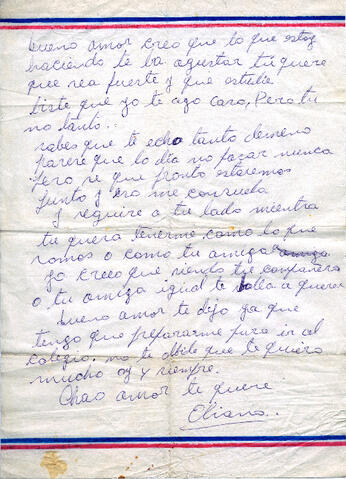 bueno amor creo que lo que estoy
haciendo te va agustar tu quere
que sea fuerte y que estudie
biste que yo te ago caso. Pero tu
no tanto..
sabes que te echo tanto demeno
parese que lo dia no pasar nunca
Pero se que pronto estaremos
junto y eso me consuela
y seguire a tu lado mientra
tu quera tenerme como lo que
somos o como tu amiga
yo creeo que siendo tu compañera
o tu amiga igual te volla a querer
bueno amor te dejo ya que
tengo que prepararme para ir al
colegio. no te olbite que te quiero
mucho oy y siempre.
Chao amor te quere
Eliana..